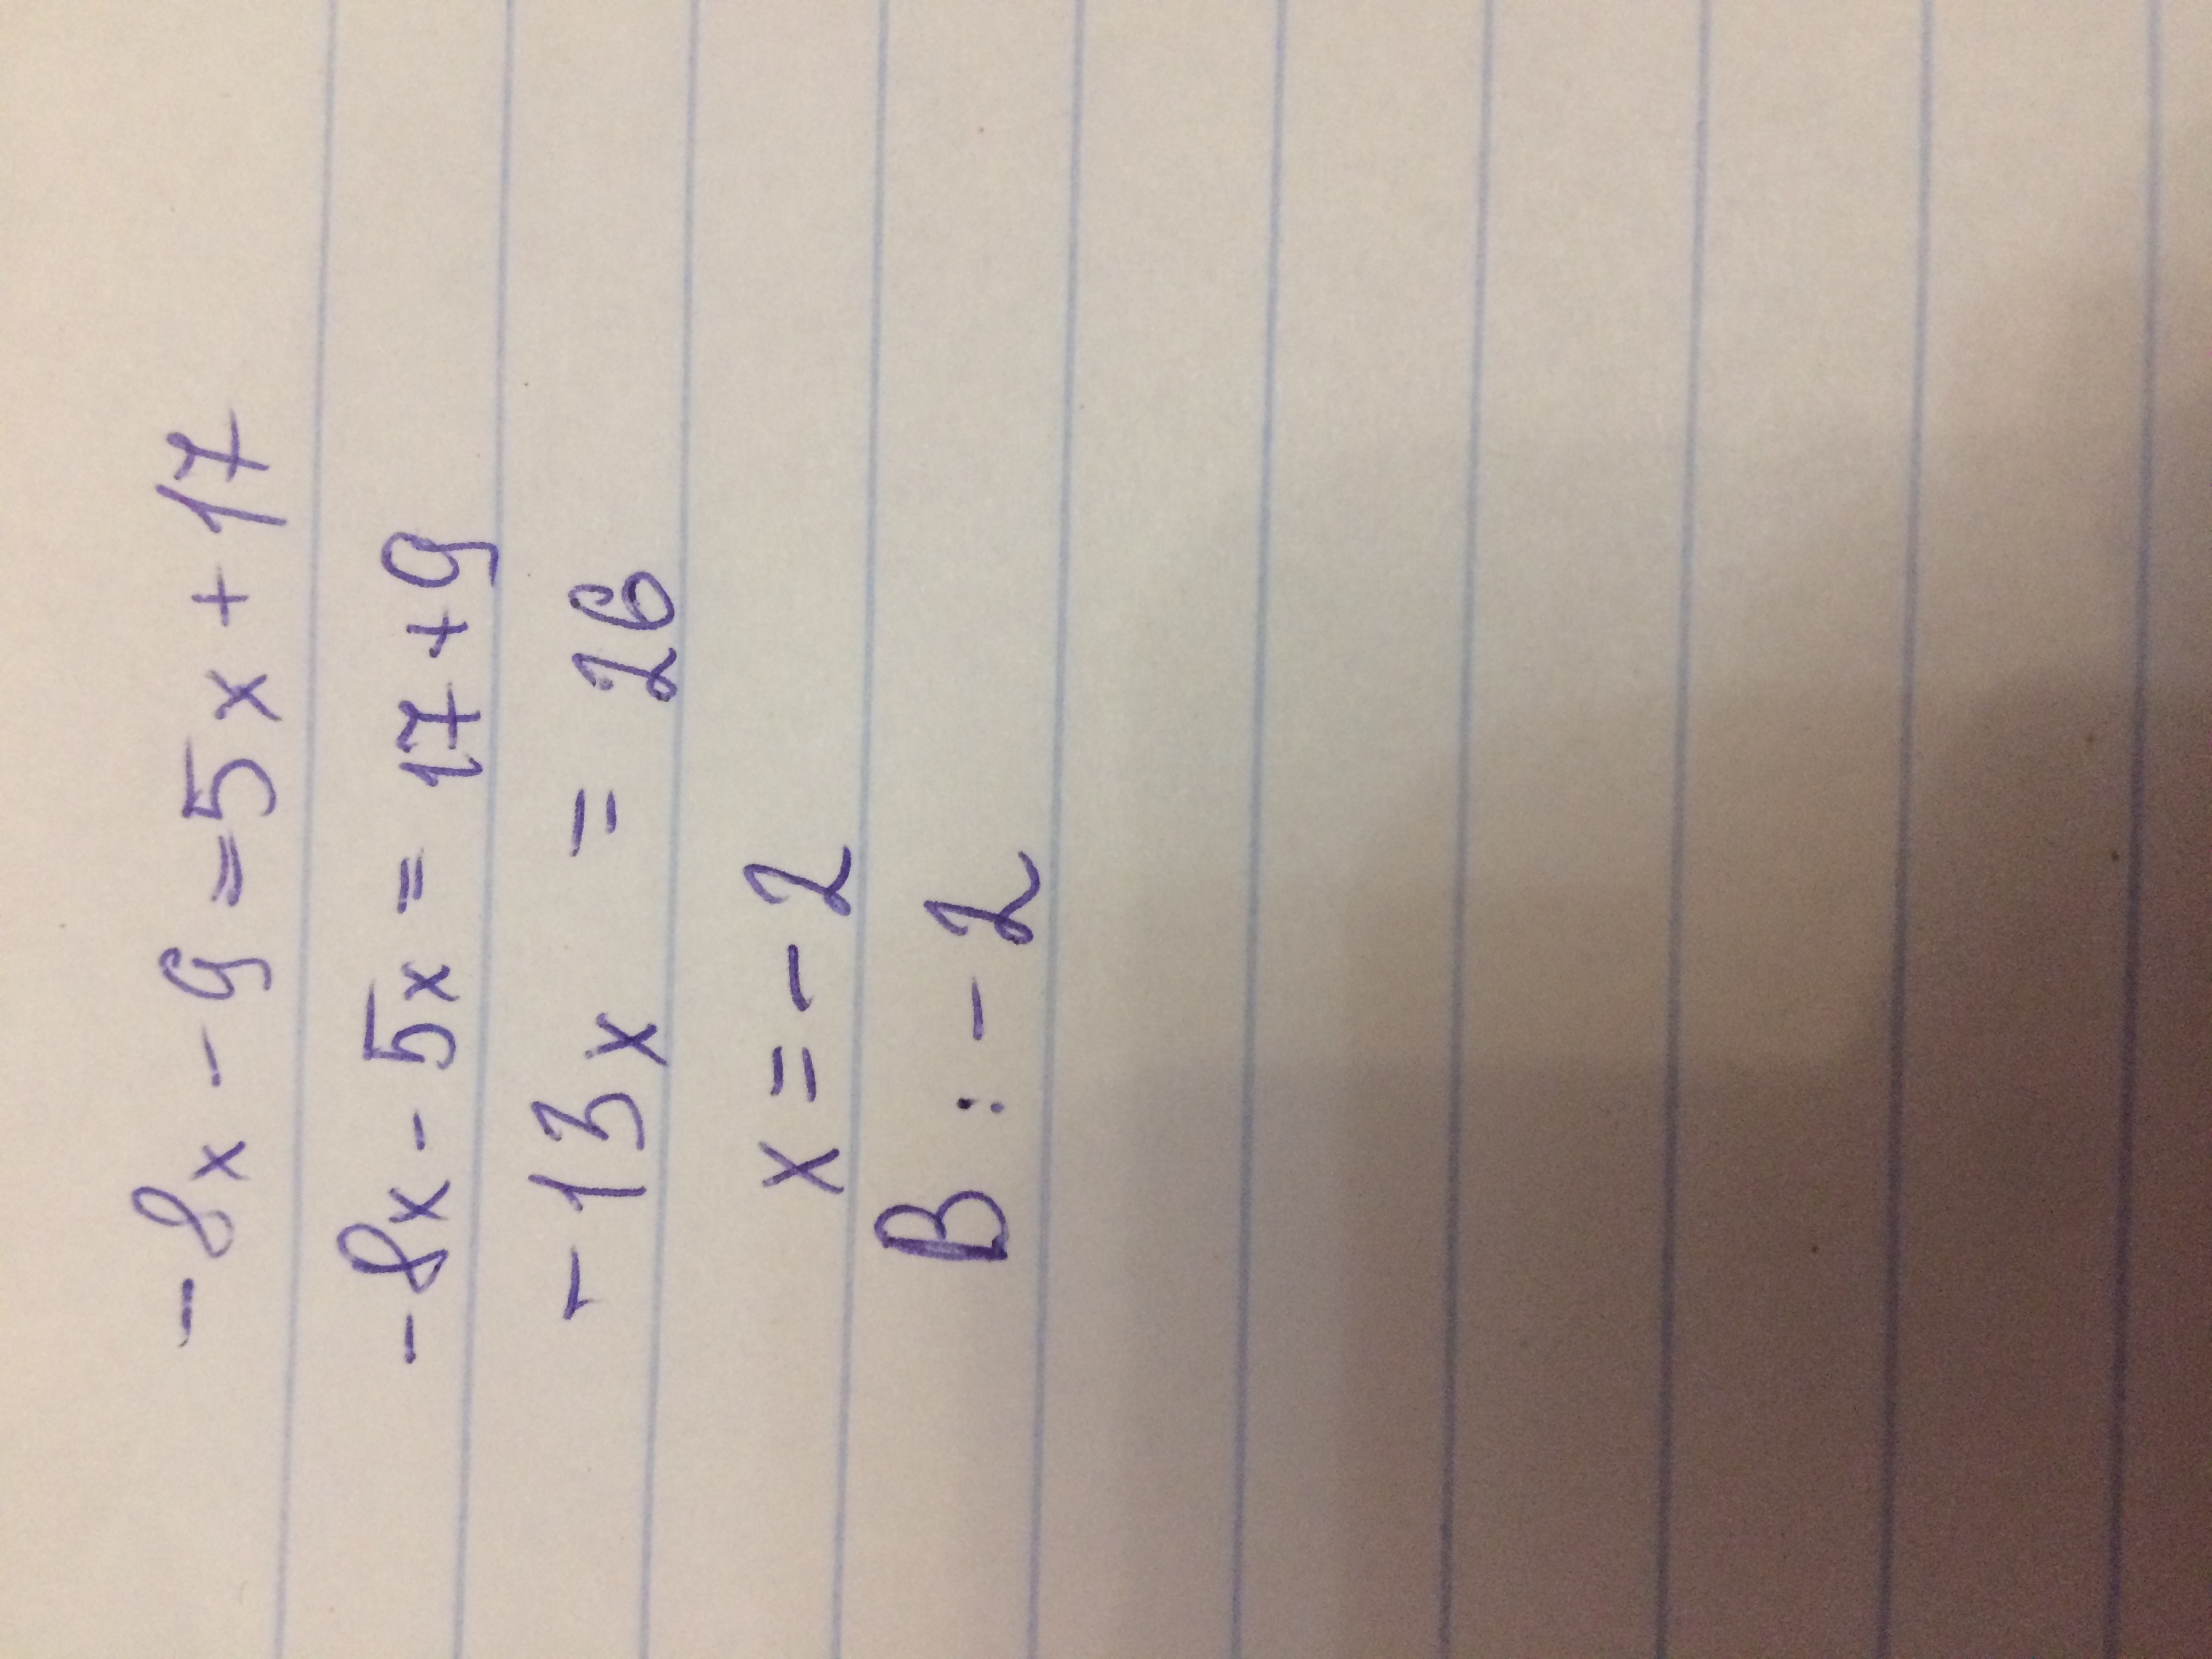 -8x - 9 = 5x + 17
-8x - 5x = 17 + 9
-13x = 26
x = - 2
В : - 2